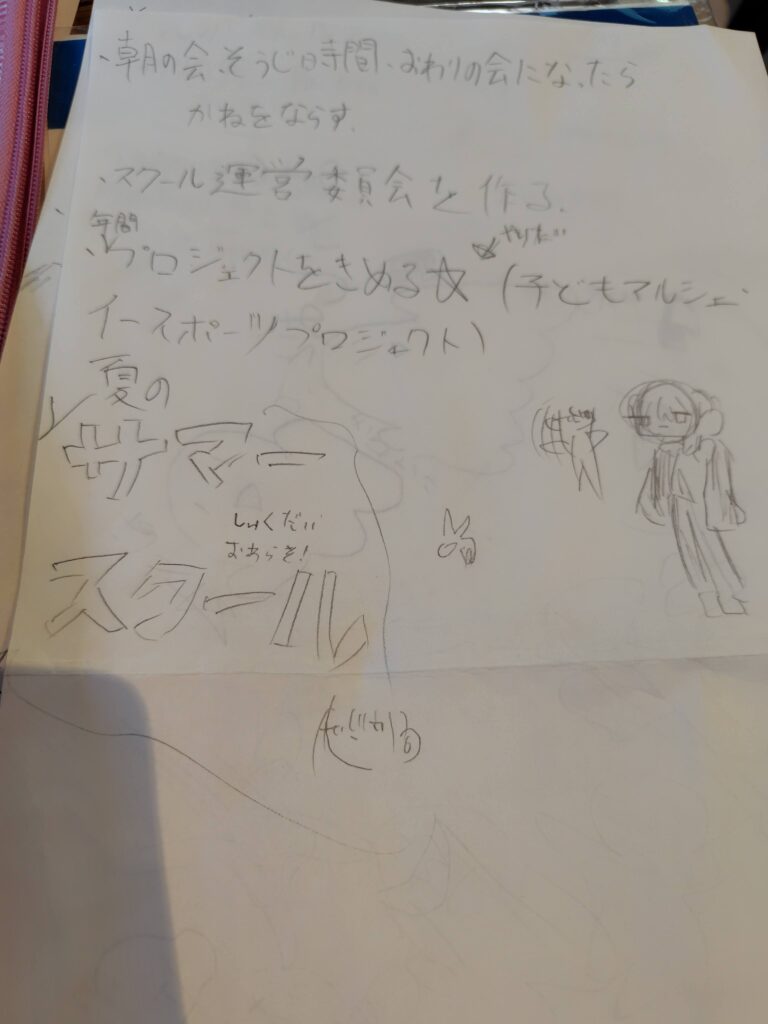 、朝の会、そうじ時間、おわりの会になったら
かねをならす。
、スクール運営委員会を作る。
年間
、プロジェクトをきめる☆ やりたい (子どもマルシェ・
イースポーツプロジェクト)
夏の
サマー
しゅくだい
おわらそ!
スクール